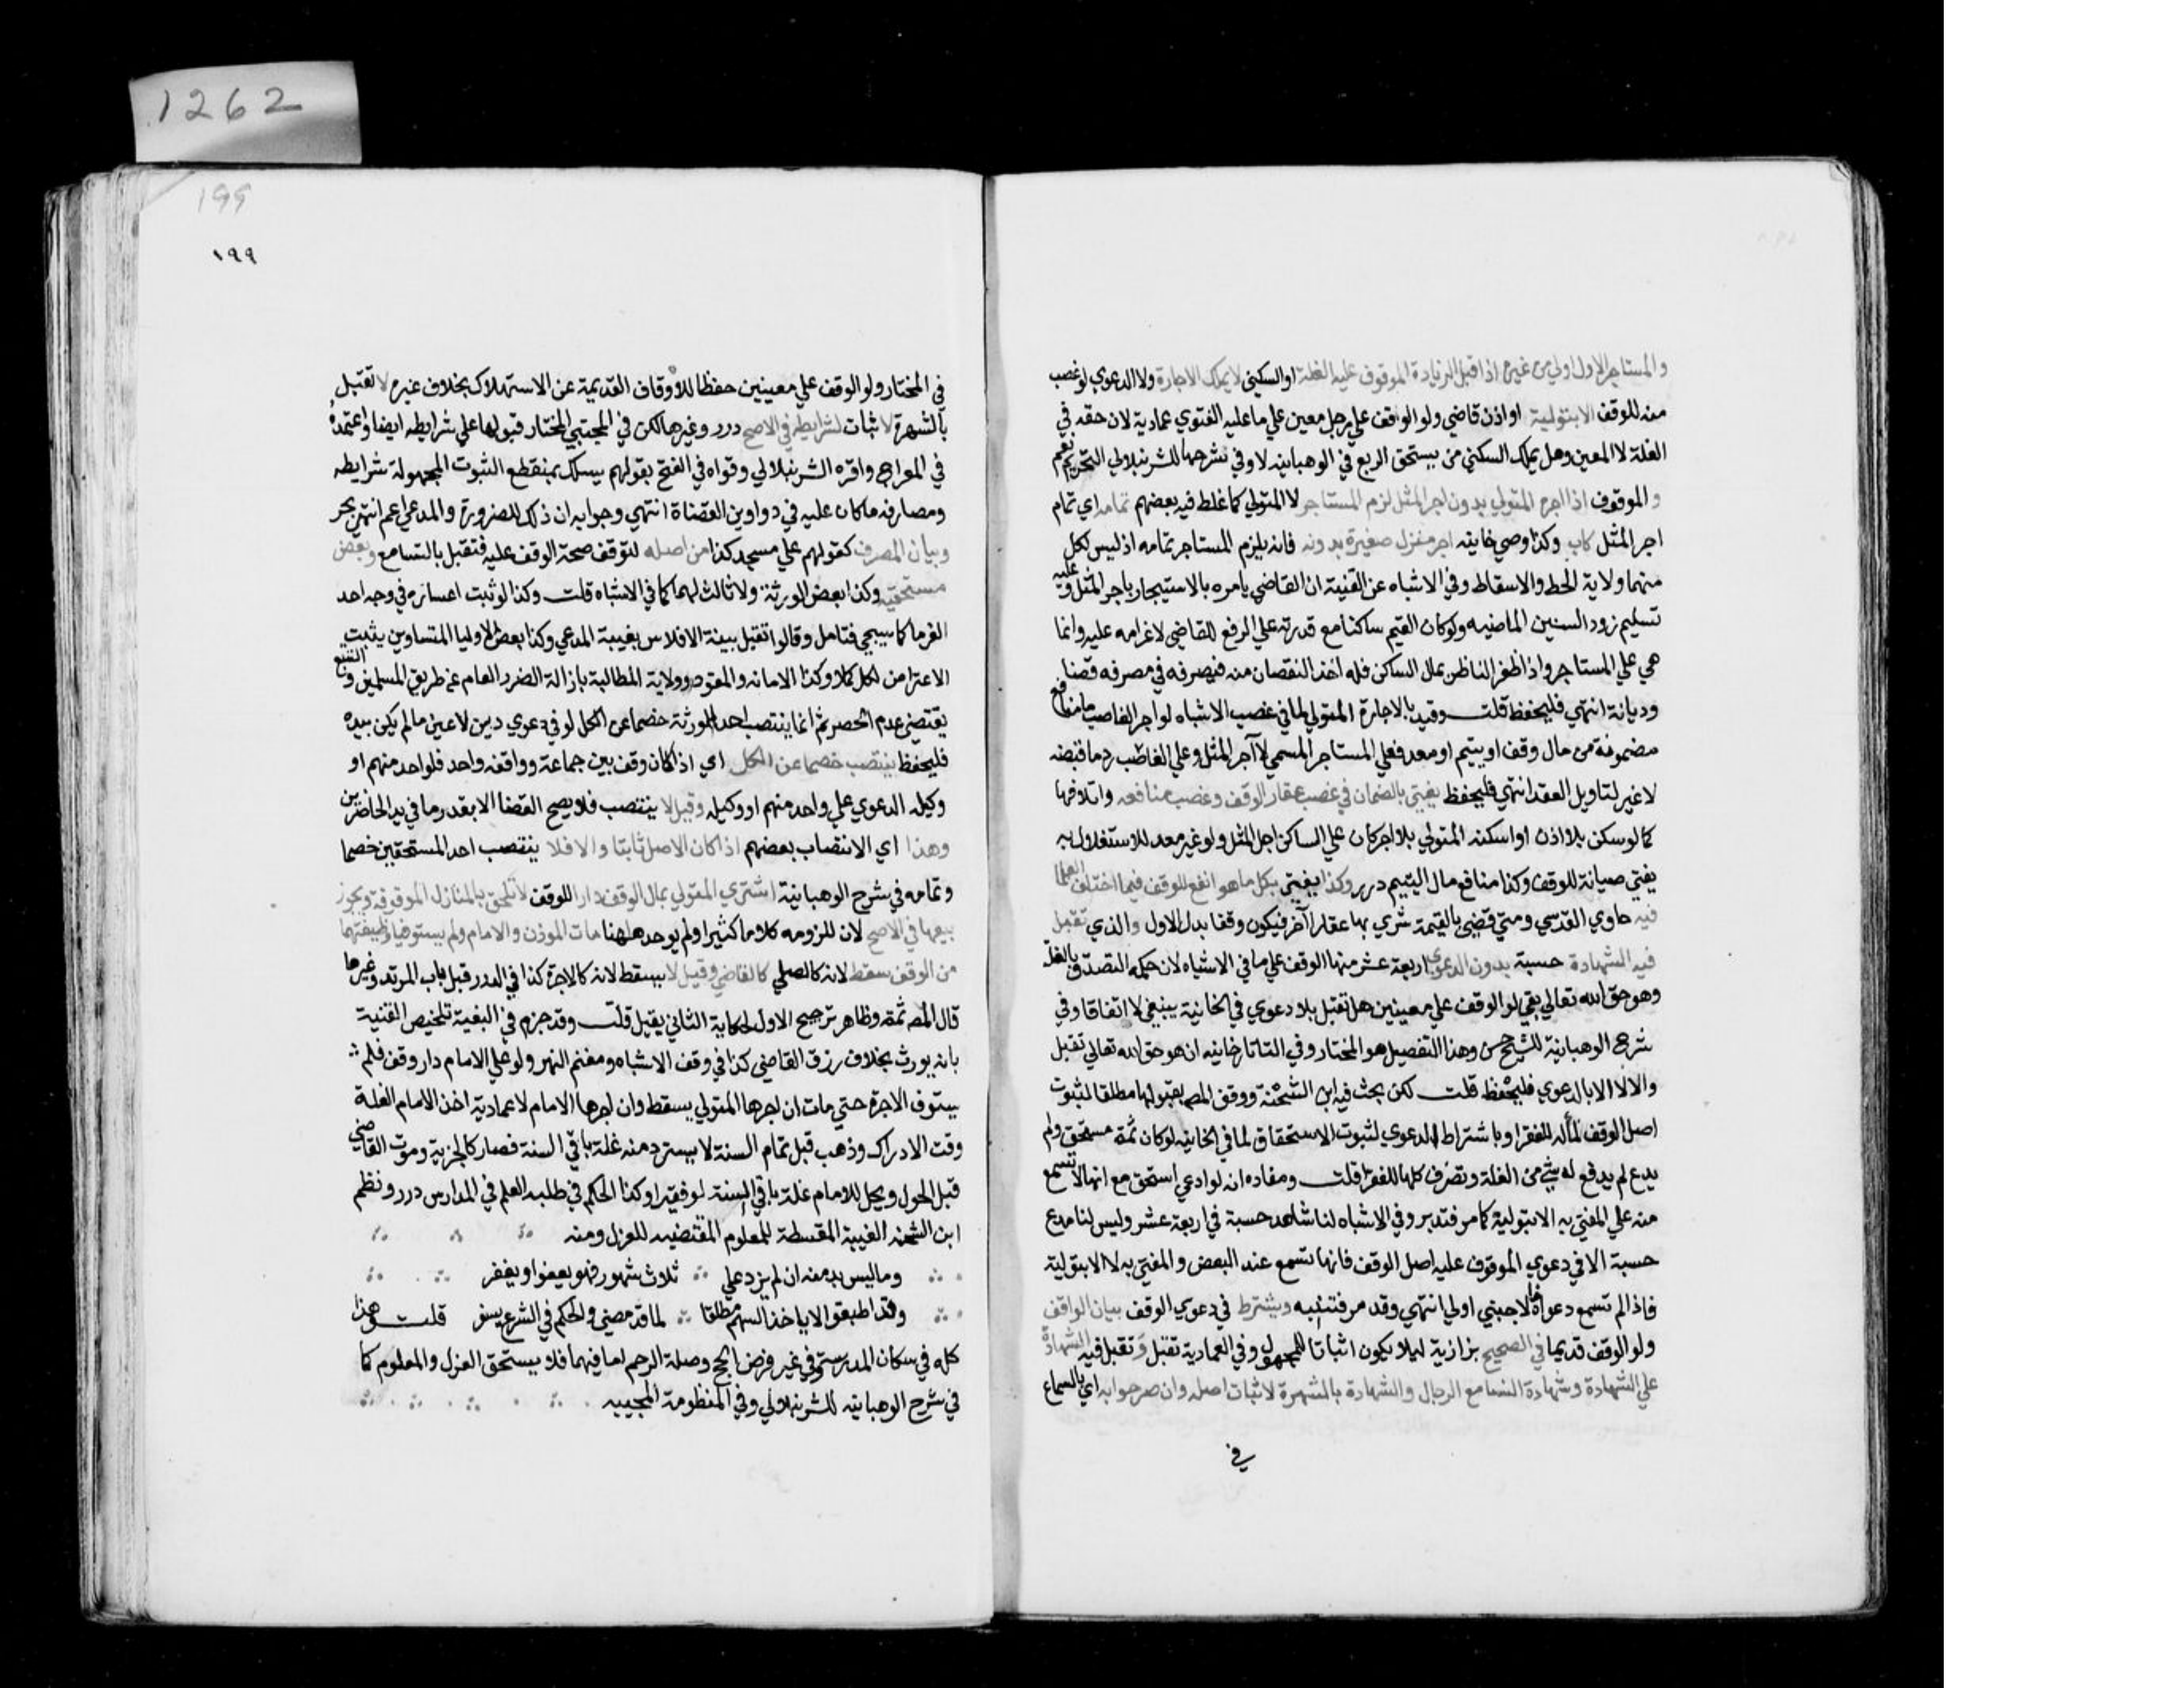 والمستاجر الاول اولي من غيره اذا قبل الزيادة الموقوف عليه الغلة او السكني لا يملك الاجارة ولا الدعوي لو غصب
منه للوقف الا بتولية او اذن قاضي ولو الوقف علي رجل معين علي ما عليه الفتوي عمادية لان حقه في
الغلة لا العين وهل يملك السكني من يستحق الريع في الوهبانيه لا وفي شرحها للشرنبلالي التحرير نعم
و الموقوف اذا اجره المتولي بدون اجر المثل لزم المستاجر لا المتولي كما غلط فيه بعضهم تمامه اي تمام
اجر المثل كاب وكذا وصي خانيه اجر منزل صغيره بدونه فانه يلزم المستاجر تمامه اذ ليس لكل
منهما ولاية الحط والاسقاط وفي الاشباه عن القنية ان القاضي يامره بالاستيجار باجر المثل وعليه
تسليم زود السنين الماضيه ولو كان القيم ساكتا مع قدرته علي الرفع للقاضي لا غرامه عليه وانما
هي علي المستاجر واذا ظفر الناظر بمال الساكن فله اخذ النقصان منه فيصرفه في مصرفه قضا
وديانة انتهي فليحفظ قلت وقيد بالاجارة المتولي لما في غصب الاشباه لو اجر الغاصب ما منافعه
مضمونة من مال وقف او يتيم او معد فعلي المستاجر المسمي لا اجر المثل وعلي الغاصب رد ما قبضه
لا غير لتاويل العقد انتهي فليحفظ يفتي بالضمان في غصب عقار الوقف وغصب منافعه واتلافها
كما لو سكن بلا اذن او اسكنه المتولي بلا اجر كان علي الساكن اجر المثل ولو غير معد للاستغلال به
يفتي صيانة للوقف وكذا منافع مال اليتيم درر وكذا يفتي بكل ما هو انفع للوقف فيما اختلف العلما
فيه حاوي القدسي ومتي قضي بالقيمة شري بها عقار آخر فيكون وقفا بدل الاول والذي تقبل
فيه الشهادة حسبة بدون الدعوي اربعة عشر منها الوقف علي ما في الاشباه لان حكمه التصدق بالغلة
وهو حق الله تعالي بقي لو الوقف علي معينين هل تقبل بلا دعوي في الخانية ينبغي لا اتفاقا وفي
شرح الوهبانية للشيخ حسن وهذا التفصيل هو المختار وفي التاتارخانيه ان هو حق الله تعالي تقبل
والا لا الا بالدعوي فليحفظ قلت لكن بحث فيه ابن الشحنة ووفق المص بقبولها مطلقا لثبوت
اصل الوقف لمأله للفقرا وباشتراط الدعوي لثبوت الاستحقاق لما في الخانيه لو كان ثمة مستحق ولم
يدع لم يدفع له شي من الغلة وتصرف كلها للفقرا قلت ومفاده انه لو ادعي استحق مع انها لا تسمع
منه علي المفتي به الا بتولية كما مر فتدبر وفي الاشباه لنا شاهد حسبة في اربعة عشر وليس لنا مدع
حسبة الا في دعوي الموقوف عليه اصل الوقف فانها تسمع عند البعض والمفتي به لا الا بتولية
فاذا لم تسمع دعواه فالاجنبي اولي انتهي وقد مر فتنبه ويشترط في دعوي الوقف بيان الواقف
ولو الوقف قديما في الصحيح بزازية ليلا يكون اثباتا للمجهول وفي العمادية تقبل وتقبل فيه الشهادة
علي الشهادة وشهادة النسا مع الرجال والشهادة بالشهرة لاثبات اصله وان صرحوا به اي بالسماع
في
١٩٩
في المختار ولو الوقف علي معينين حفظا للأوقاف القديمة عن الاستهلاك بخلاف غيره لا تقبل
بالشهرة لاثبات لشرايطه في الاصح درر وغيرها لكن في المجتبي المختار قبولها علي شرايطه ايضا واعتمده
في المعراج واقره الشرنبلالي وقواه في الفتح بقولهم يسلك بمنقطع الثبوت المجهولة شرايطه
ومصارفه ما كان عليه في دواوين القضاة انتهي وجوابه ان ذلك للضرورة والمدعي اعم انتهي بحر
وبيان المصرف كقولهم علي مسجد كذا من اصله لتوقف صحة الوقف عليه فتقبل بالتسامع وبعض
مستحقيه وكذا بعض الورثة ولا ثالث لهما كما في الاشباه قلت وكذا لو ثبت اعساره في وجه احد
الغرما كما سيجي فتامل وقالوا تقبل بينة الافلاس بغيبة المدعي وكذا بعض الاوليا المتساوين يثبت
الاعتراض لكل كلا وكذا الامان والقود وولاية المطالبة بازالة الضرر العام عن طريق المسلمين والتتبع
يقتضي عدم الحصر ثم انما ينتصب احد الورثة خصما عن الكل لو في دعوي دين لا عين ما لم يكن بيده
فليحفظ ينتصب خصما عن الكل اي اذا كان وقف بين جماعة وواقفه واحد فلو احد منهم او
وكيله الدعوي علي واحد منهم او وكيله وقيل لا ينتصب فلا يصح القضا الا بقدر ما في يد الحاضرين
وهذا اي الانتصاب بعضهم اذا كان الاصل ثابتا والا فلا ينتصب احد المستحقين خصما
وتمامه في شرح الوهبانية اشتري المتولي بمال الوقف دارا للوقف لا تلحق بالمنازل الموقوفة ويجوز
بيعها في الاصح لان للزومه كلاما كثيرا ولم يوجد ههنا مات الموذن والامام ولم يستوفيا وظيفتهما
من الوقف سقط لانه كالصلي كالقاضي وقيل لا يسقط لانه كالاجرة كذا في الدرر قبل باب المرتد وغيرها
قال المص ثمة وظاهر ترجيح الاول لحكاية الثاني بقيل قلت وقد جزم في البغية تلخيص القنية
بانه يورث بخلاف رزق القاضي كذا في وقف الاشباه ومغنم النهر ولو علي الامام دار وقف فلم
يستوف الاجرة حتي مات ان اجرها المتولي يسقط وان اجرها الامام لا عمادية اخذ الامام الغلة
وقت الادراك وذهب قبل تمام السنة لا يسترد منه غلة باقي السنة فصار كالجزية وموت القاضي
قبل الحول ويحل للامام غلة باقي السنة لو فقيرا وكذا الحكم في طلبه العلم في المدارس درر ونظم
ابن الشحنه الغيبة المقسطة للمعلوم المقتضيه للعزل ومنه
وما ليس بد منه ان لم يزد علي ثلاث شهور فهو يعفوا ويغفر
وقد اطبقوا لا ياخذ السهم مطلقا لما قد مضي والحكم في الشرع يسفر قلت وهذا
كله في سكان المدرسة وفي غير فرض الحج وصلة الرحم اما فيهما فلا يستحق العزل والمعلوم كما
في شرح الوهبانيه للشرنبلالي وفي المنظومة المحبيه
1262
199